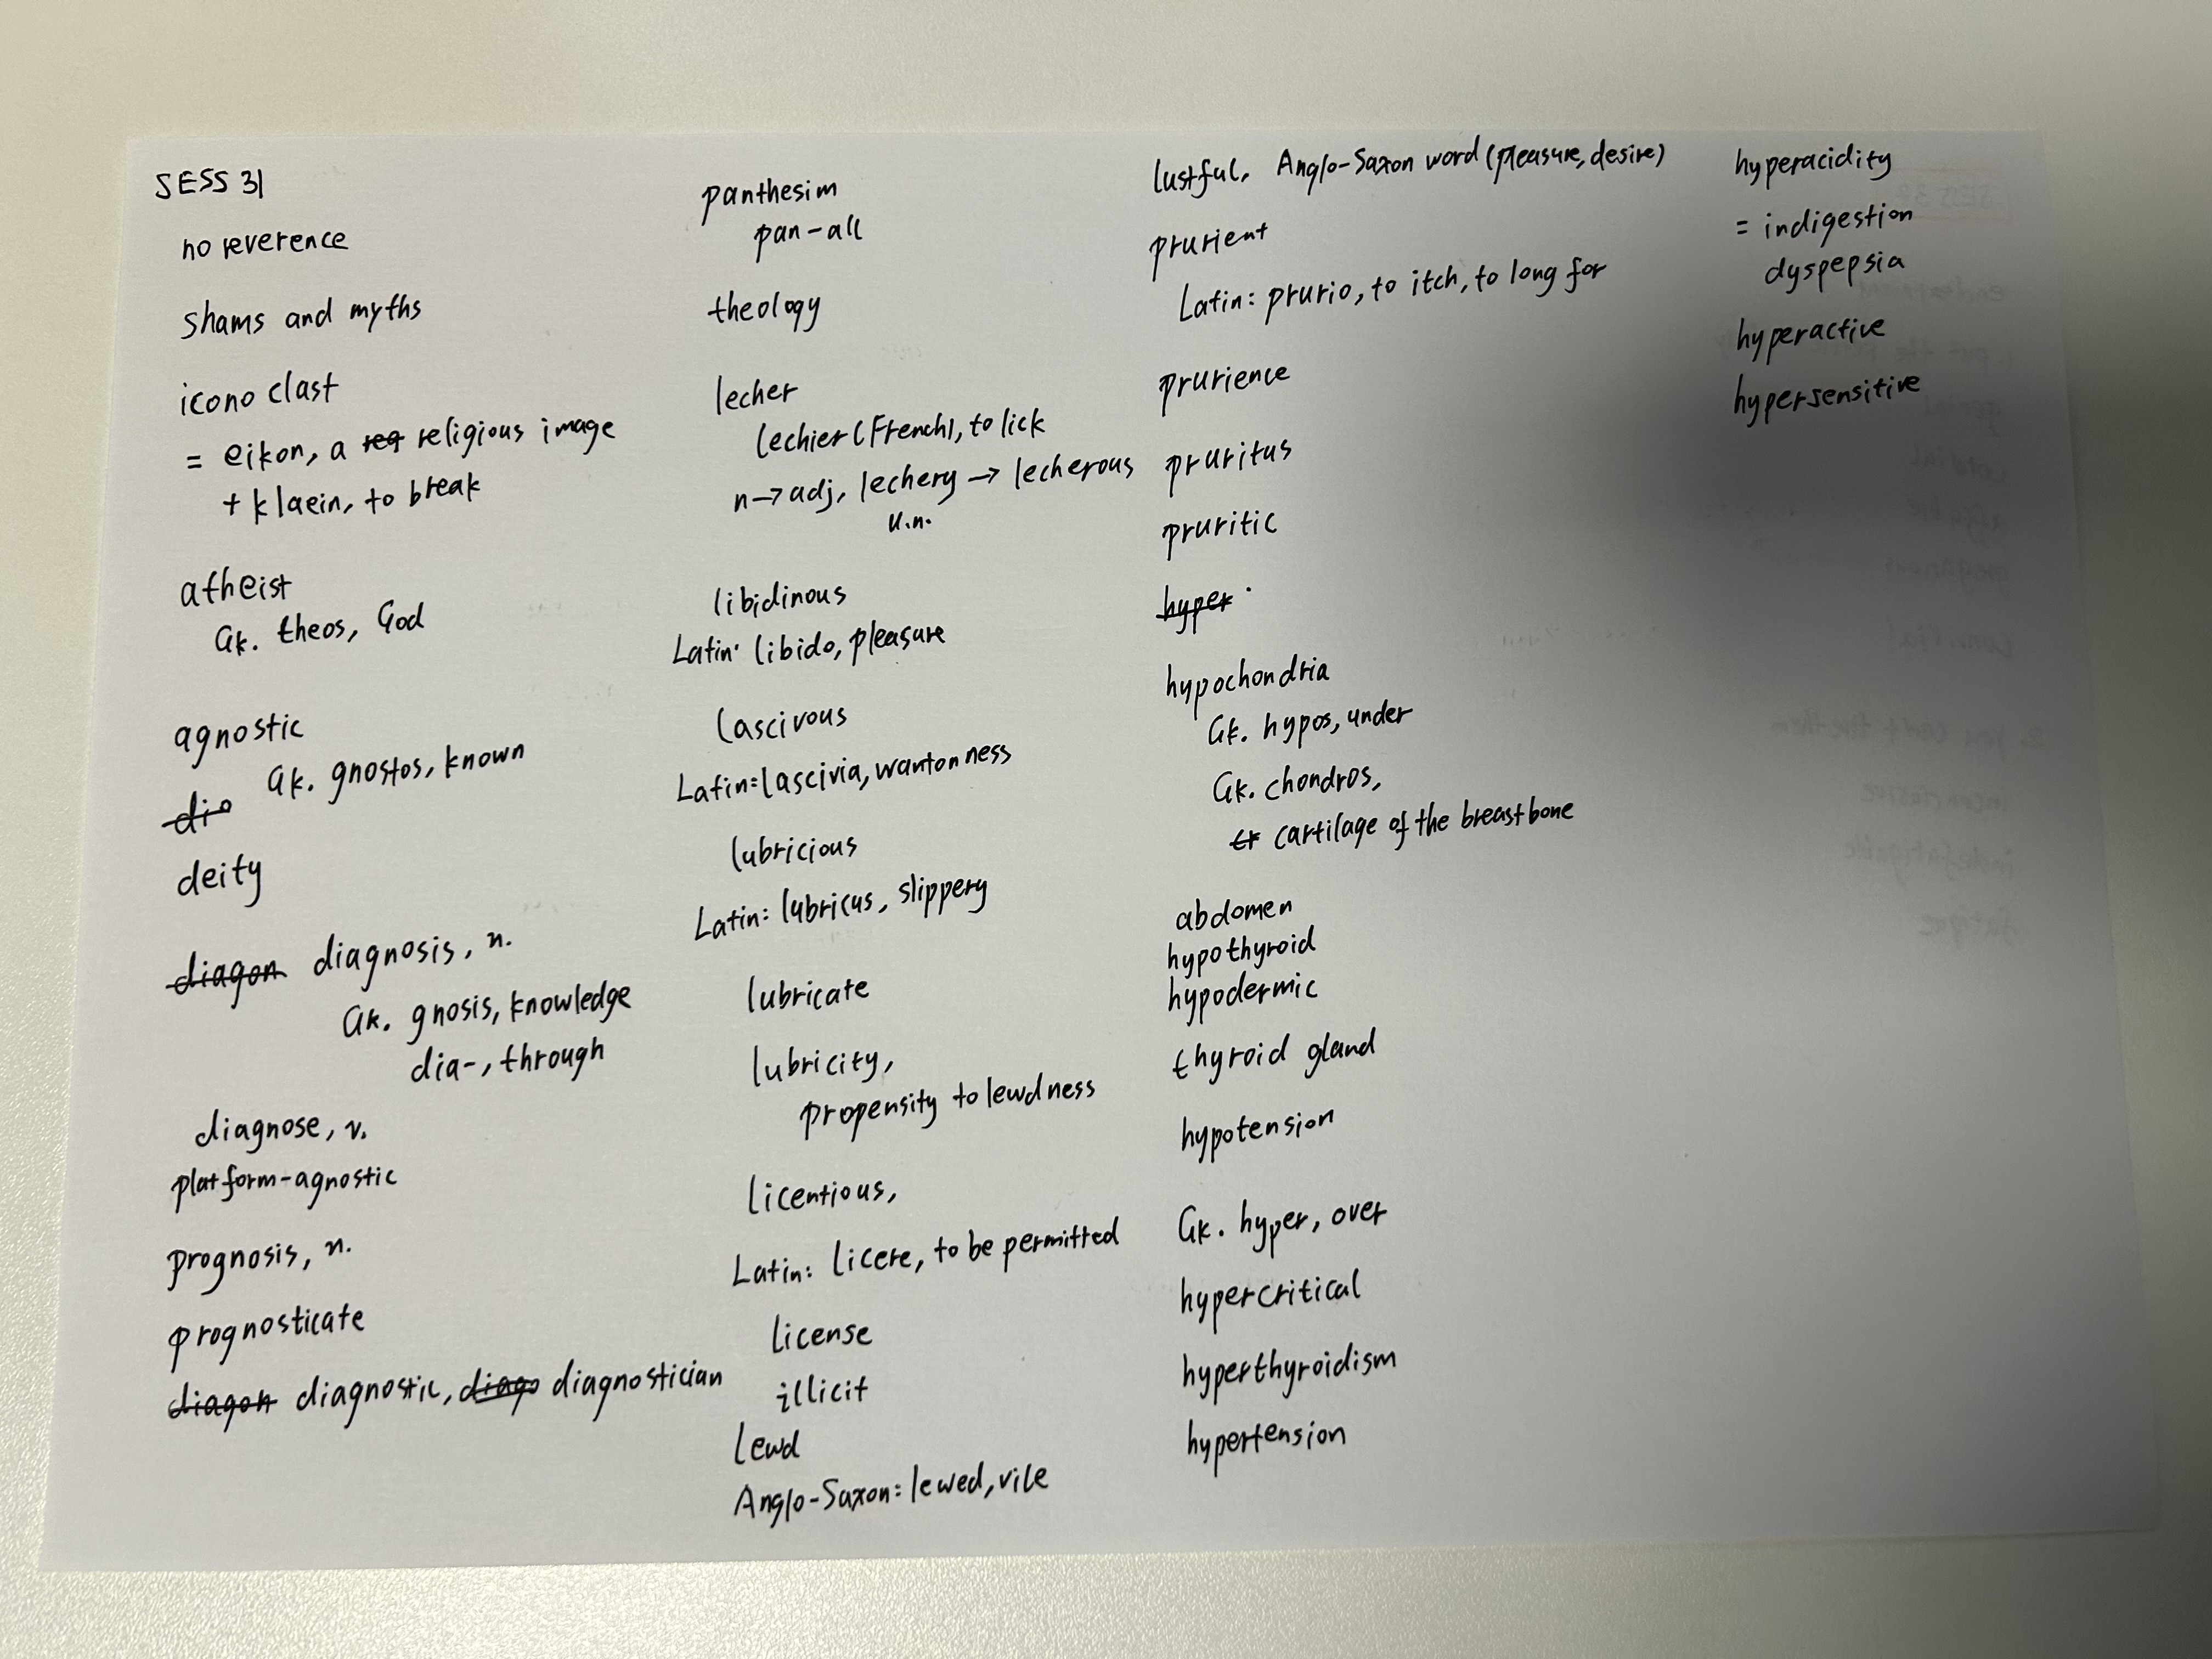 SESS 31
no reverence
shams and myths
icono clast
= eikon, a req religious image
+ klaein, to break
atheist
Gk. theos, God
agnostic
Gk. gnostos, known
dio
deity
diagon diagnosis, n.
Gk. gnosis, knowledge
dia-, through
diagnose, v.
platform-agnostic
prognosis, n.
prognosticate
diagon diagnostic, diago diagnostician
panthesim
pan-all
theology
lecher
lechier (French), to lick
n→adj, lechery → lecherous
u.n.
libidinous
Latin: libido, pleasure
lascivous
Latin: lascivia, wantonness
lubricious
Latin: lubricus, slippery
lubricate
lubricity,
propensity to lewdness
licentious,
Latin: licere, to be permitted
license
illicit
lewd
Anglo-Saxon: lewed, vile
lustful, Anglo-Saxon word (pleasure, desire)
prurient
Latin: prurio, to itch, to long for
prurience
pruritus
pruritic
hyper
hypochondria
Gk. hypos, under
Gk. chondros,
cr cartilage of the breastbone
abdomen
hypothyroid
hypodermic
thyroid gland
hypotension
Gk. hyper, over
hypercritical
hyperthyroidism
hypertension
hyperacidity
= indigestion
dyspepsia
hyperactive
hypersensitive